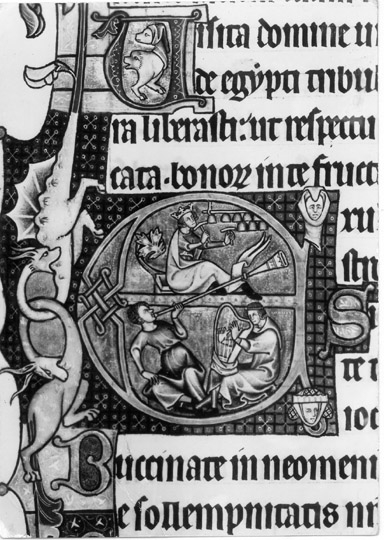 Visita domine
de egypti tribul
ra liberasti: ut respectu
cata. bonorꝝ in te fruct
E
te t
ioc
Buccinate in neomeni
e sollempnitatis